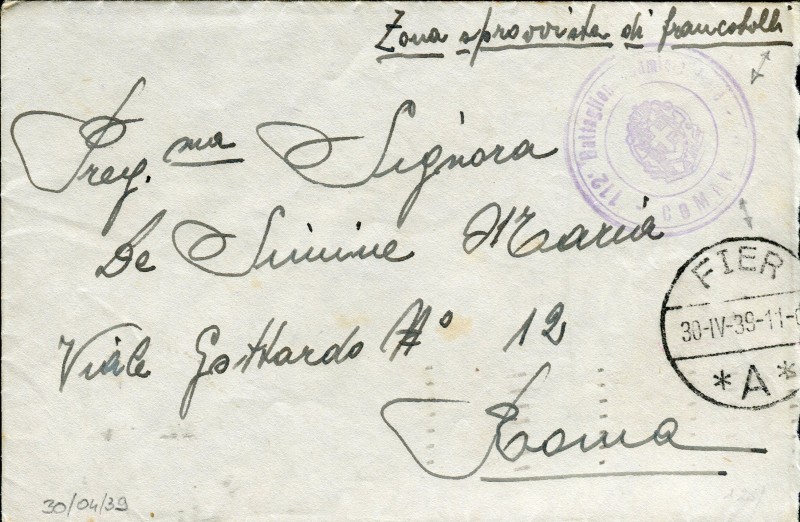 Zona sprovvista di francobolli
112° Battaglione
COMAN
Preg.ma Signora
De Simine Maria
FIER
30-IV-39-11
* A *
Viale Gottardo N° 12
Roma
30/04/39